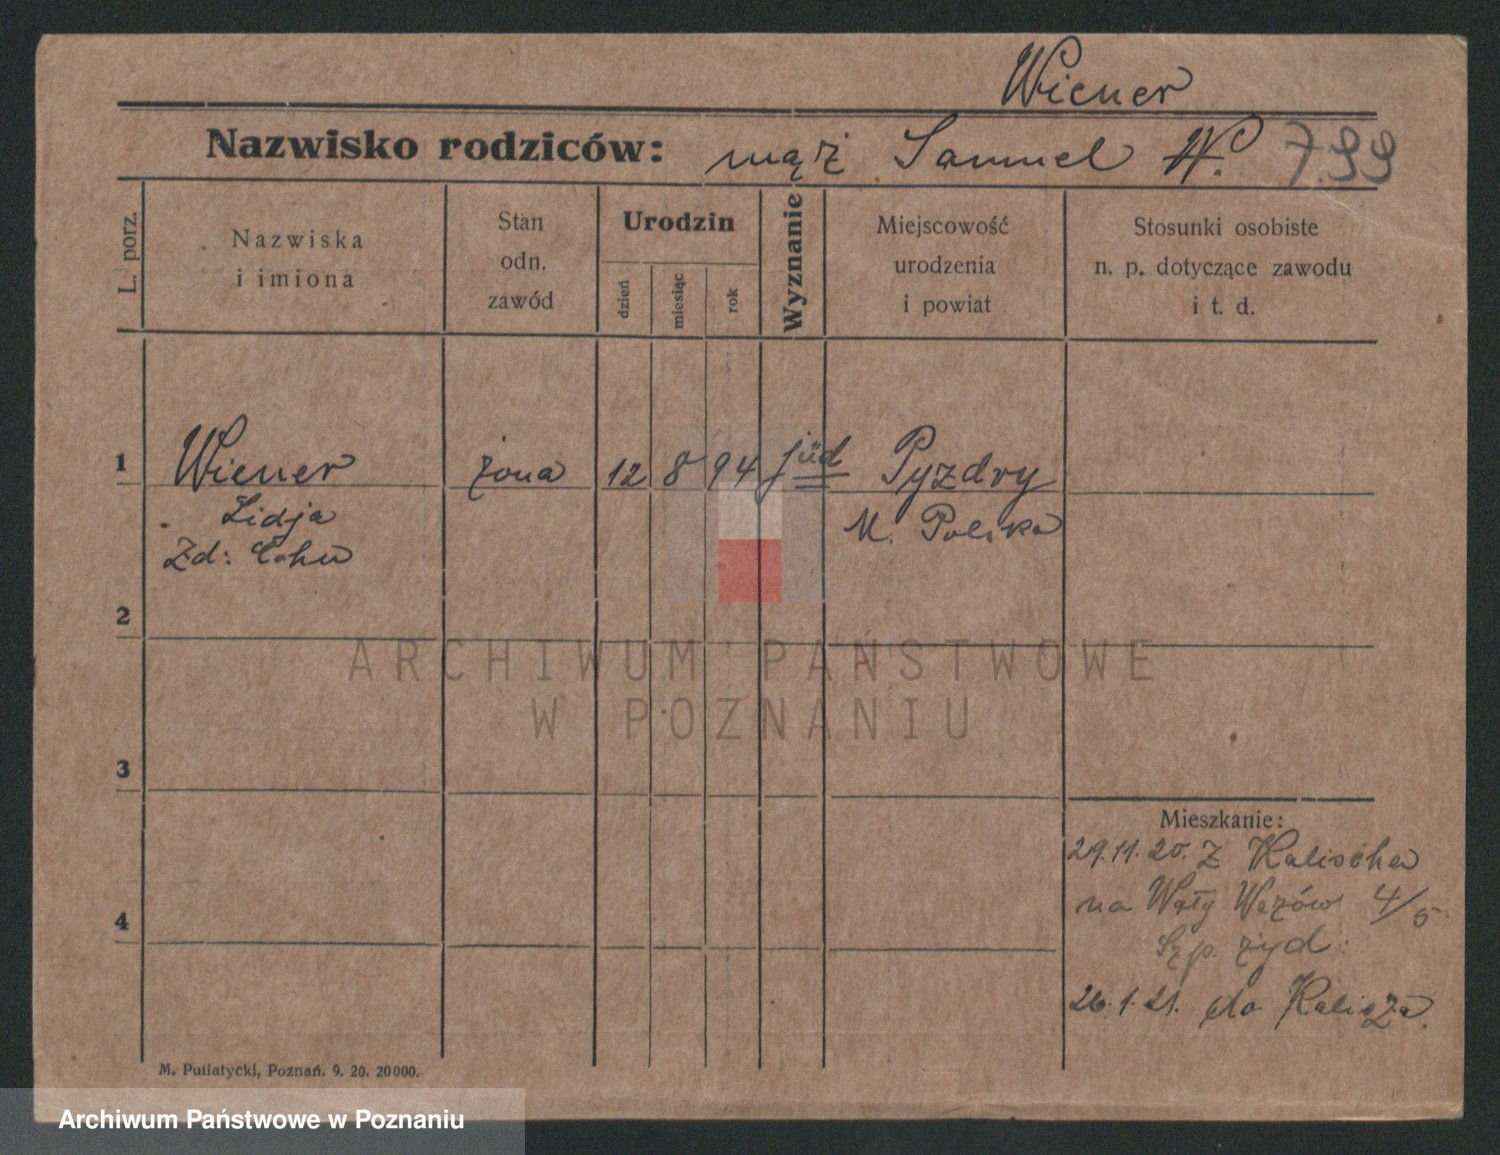 Wiener
Nazwisko rodziców: mąż Samuel W. 799
L. porz.
Nazwiska
i imiona
Stan
odn.
zawód
Urodzin
dzień
miesiąc
rok
Wyznanie
Miejscowość
urodzenia
i powiat
Stosunki osobiste
n. p. dotyczące zawodu
i t. d.
1 Wiener żona 12 8 94 jüd Pyzdry
Lidja M. Polska
Zd: Cohn
2
3
4
Mieszkanie:
29.11.20. z Kalischa
na Wały Wazów 4/5.
Szp. żyd:
26.1.21. do Kalisza.
M. Putiatycki, Poznań. 9. 20. 20000.
ARCHIWUM PAŃSTWOWE
W POZNANIU
Archiwum Państwowe w Poznaniu